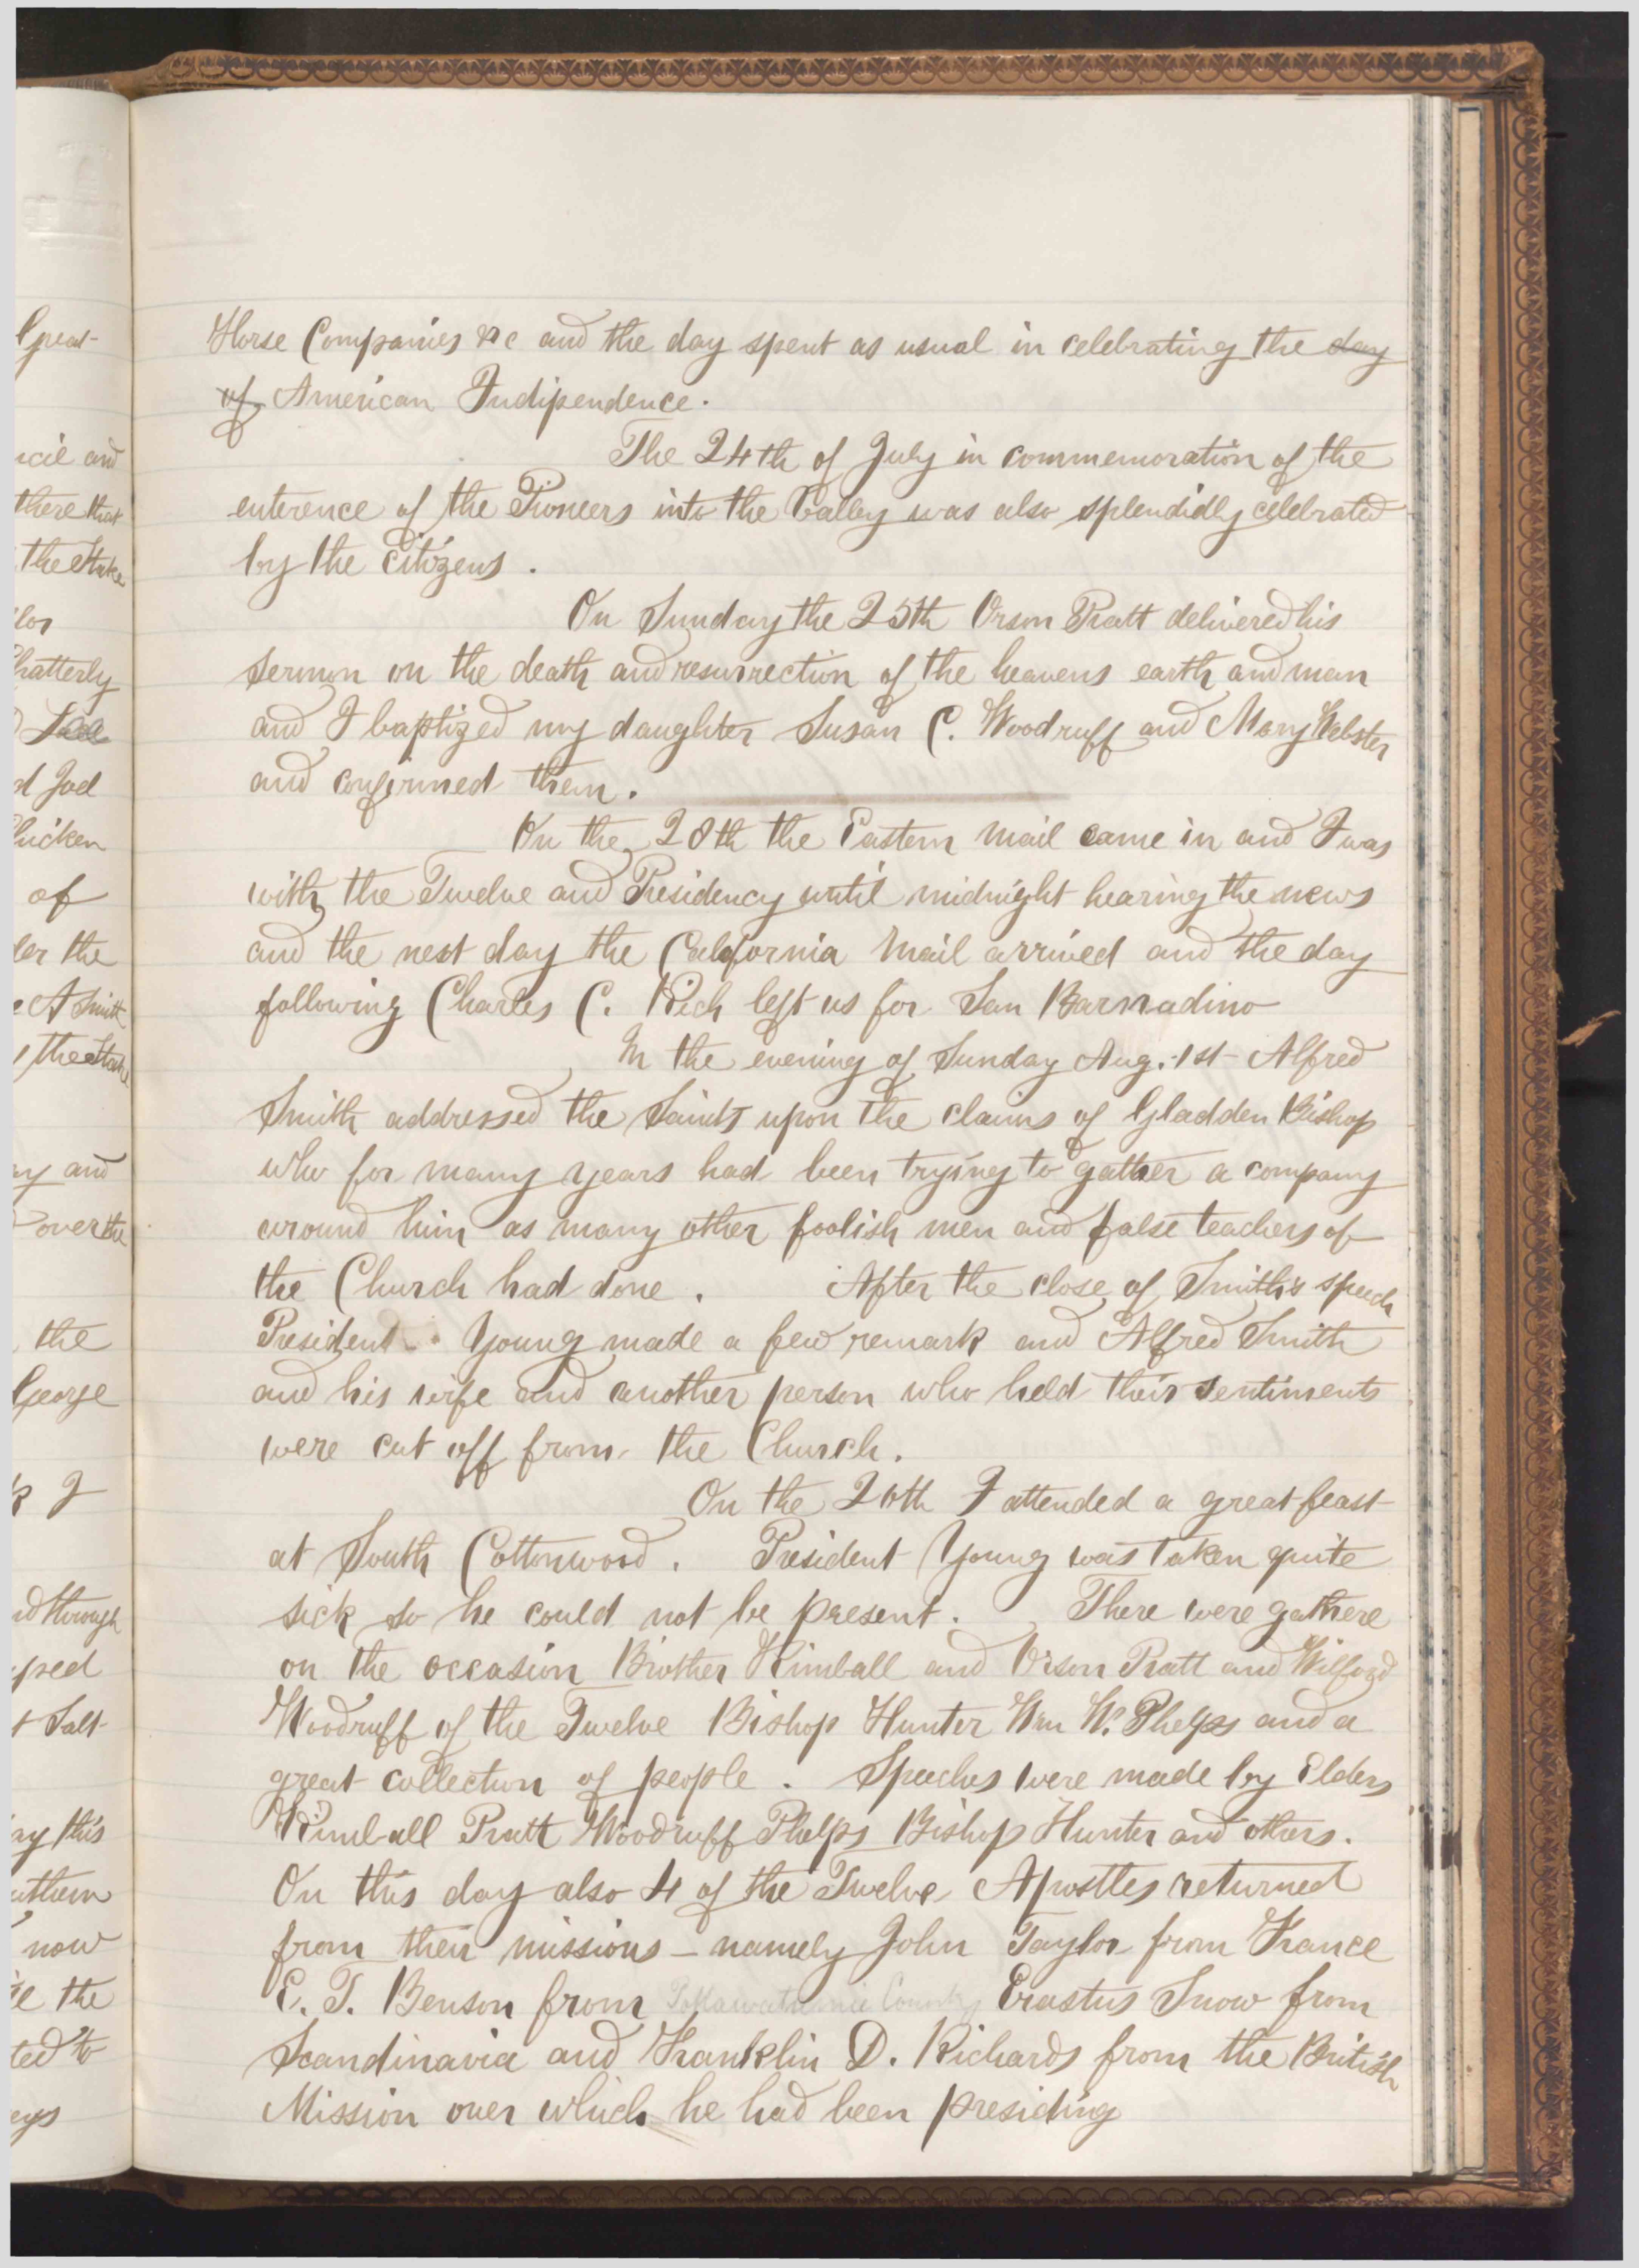 Horse Companies &c and the day spent as usual in celebrating the day
of American Indipendence.
The 24th of July in commemoration of the
enterence of the Pioneers into the Valley was also splendidly celebrated
by the citizens.
On Sunday the 25th Orson Pratt delivered his
sermon on the death and resurrection of the heavens earth and man
and I baptized my daughter Susan C. Woodruff and Mary Webster
and confirmed them.
On the 28th the Eastern Mail came in and I was
with the Twelve and Presidency until midnight hearing the news
and the next day the California Mail arrived and the day
following Charles C. Rich left us for San Barnadino
In the evening of Sunday Aug. 1st Alfred
Smith addressed the Saints upon the claims of Gladden Bishop
who for many years had been trying to gather a company
around him as many other foolish men and false teachers of
the Church had done. After the close of Smith's speech
President Young made a few remark and Alfred Smith
and his wife and another person who held their sentiments
were cut off from the Church.
On the 20th I attended a great feast
at South Cottonwood. President Young was taken quite
sick so he could not be present. There were gathere
on the occasion Brother Kimball and Orson Pratt and Wilford
Woodruff of the Twelve Bishop Hunter Wm W. Phelps and a
great collection of people. Speeches were made by Elders
Kimball Pratt Woodruff Phelps Bishop Hunter and others.
On this day also 4 of the Twelve Apostles returned
from their missions - namely John Taylor from France
E. T. Benson from Pottawattamie County Erastus Snow from
Scandinavia and Franklin D. Richards from the British
Mission over which he had been presiding